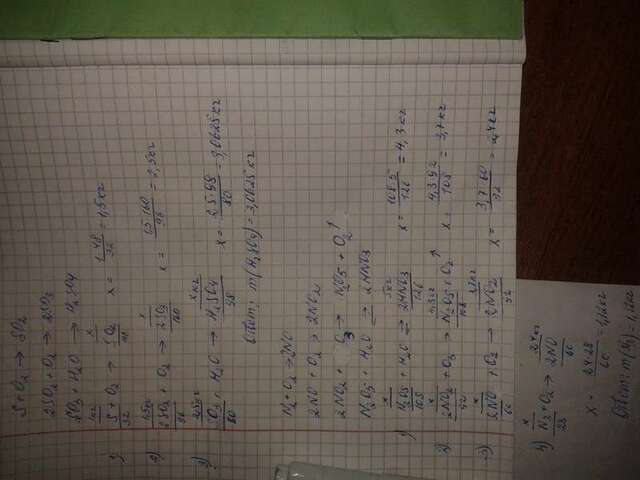 S + O₂ → SO₂
2SO₂ + O₂ → 2SO₃
SO₃ + H₂O → H₂SO₄
1) S + O₂ → SO₂ x = 1·48/32 = 1,5 кг
2) 2SO₂ + O₂ → 2SO₃ x = 1,5·160/96 = 2,5 кг
3) SO₃ + H₂O → H₂SO₄ x = 2,5·98/80 = 3,0625 кг
Ответ: m(H₂SO₄) = 3,0625 кг
N₂ + O₂ → 2NO
2NO + O₂ → 2NO₂
2NO₂ + O₃ → N₂O₅ + O₂↑
N₂O₅ + H₂O → 2HNO₃
1) N₂O₅ + H₂O → 2HNO₃ x = 108·5/126 = 4,3 кг
2) 2NO₂ + O₃ → N₂O₅ + O₂ ↑ x = 4,3·92/108 = 3,7 кг
3) 2NO + O₂ → 2NO₂ x = 3,7·60/92 = 2,4 кг
4) N₂ + O₂ → 2NO
x = 2,4·28/60 = 1,12 кг
Ответ: m(N₂) = 1,12 кг